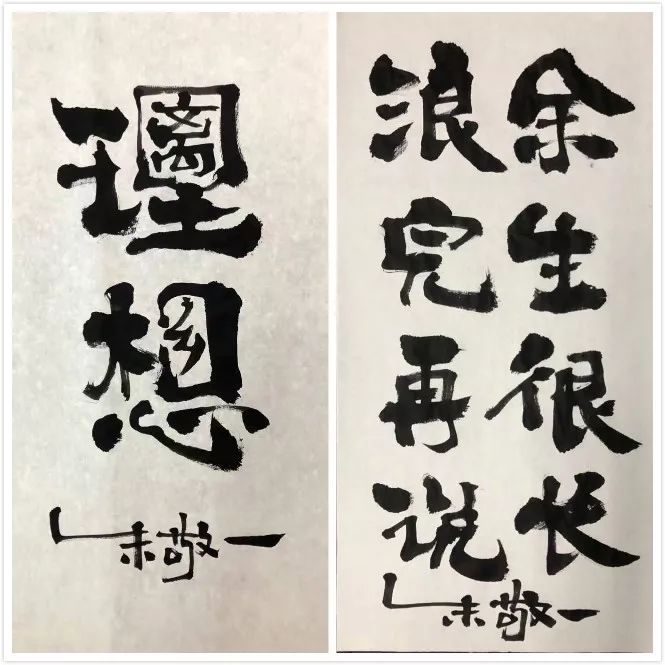 理想
离乡
朱敬一
余生很长
浪完再说
朱敬一